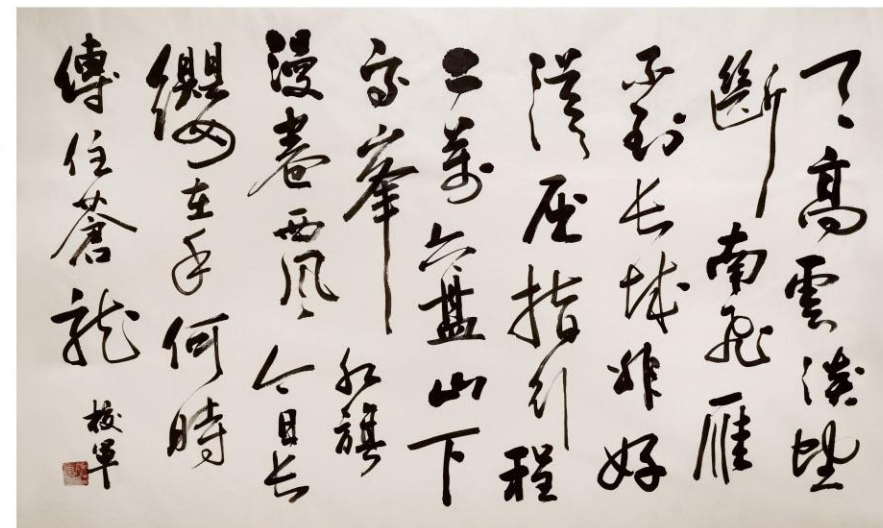 天高雲淡望
斷南飛雁
不到长城非好
漢屈指行程
二萬六盤山下
高峯红旗
漫卷西风今日长
纓在手何時
縛住蒼龍